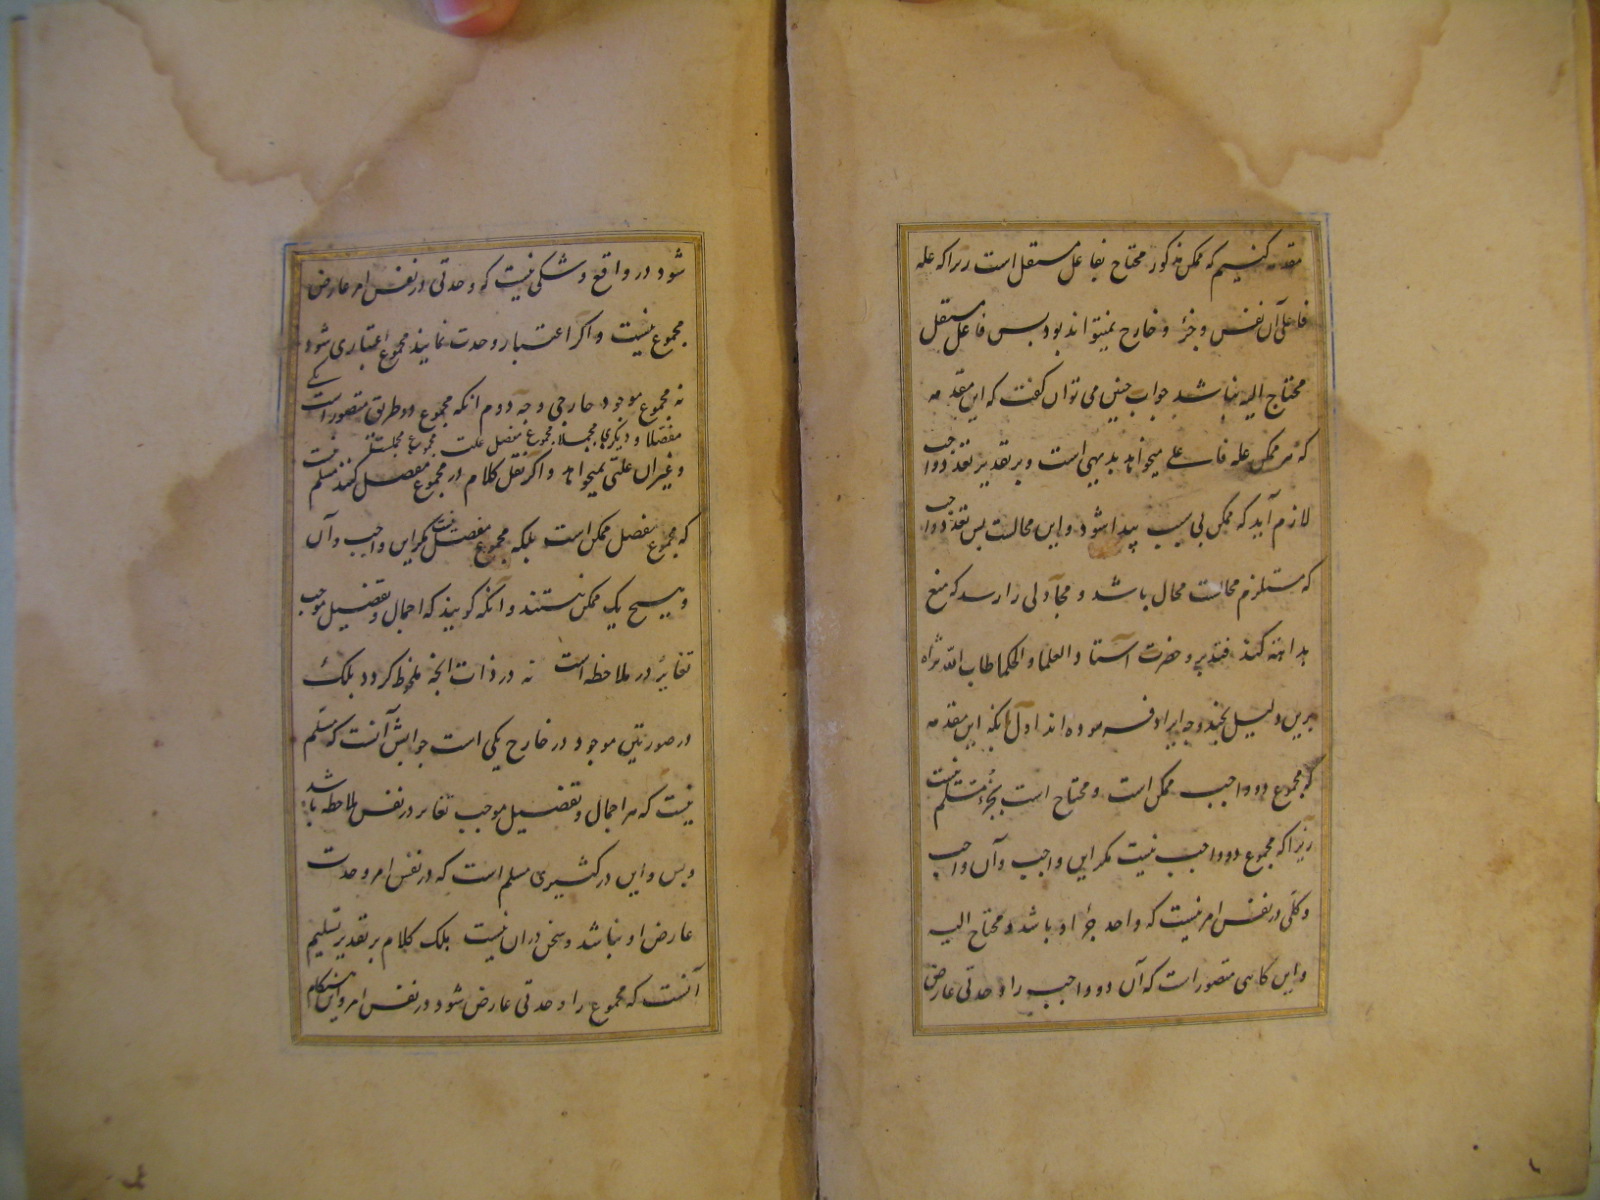 مقدمه کنیم که ممکن مذکور محتاج بفاعل مستقل است زیرا که علة
فاعلی آن نفس و جزء و خارج نمیتواند بود پس فاعل مستقل
محتاج الیه نباشد جواب چنین می توان گفت که این مقدمه
که هر ممکن علة فاعلی میخواهد بدیهی است و بر تقدیر تعدد واجب
لازم آید که ممکن بی سبب پیدا شود و این محالست پس تعدد واجب
که مستلزم محالست محال باشد و مجادلی را رسد که منع
بداهة کند فتدبر و حضرت استاد العلما و الحکما طاب الله ثراه
برین دلیل بچند وجه ایراد فرموده اند اول آنکه این مقدمه
که مجموع دو واجب ممکن است و محتاج است بجزء مسلم نیست
زیرا که مجموع دو واجب نیست مکر این واجب و آن واجب
و کلی در نفس امر نیست که واحد جزء او باشد و محتاج الیه
و این کاهی متصور است که آن دو واجب را وحدتی عارض
شود در واقع و شکی نیست که وحدتی در نفس امر عارض
مجموع نیست و اکر اعتبار وحدت نمایند مجموع اعتباری شود
نه مجموع موجود خارجی وجه دوم انکه مجموع دو طریق متصور است یکی
مفصلا و دیکری مجملا مجموع مفصل علت مجموع مجملست
و غیر ان علتی نمیخواهد و اکر نقل کلام در مجموع مفصل کنند مسلم نیست
که مجموع مفصل ممکن است بلکه مجموع مفصل نیست مکر این واجب و آن
و هیچ یک ممکن نیستند و آنکه کویند که اجمال و تفصیل موجب
تغایر در ملاحظه است نه در ذات انچه ملحوظ کردد بلکه
در صورتین موجود در خارج یکی است جوابش آنست که مسلم
نیست که هر اجمال و تفصیل موجب تغایر در نفس ملاحظه باشد
و بس و این در کثیری مسلم است که در نفس امر وحدت
عارض او نباشد و سخن در ان نیست بلکه کلام بر تقدیر تسلیم
آنست که مجموع را وحدتی عارض شود در نفس امر و این